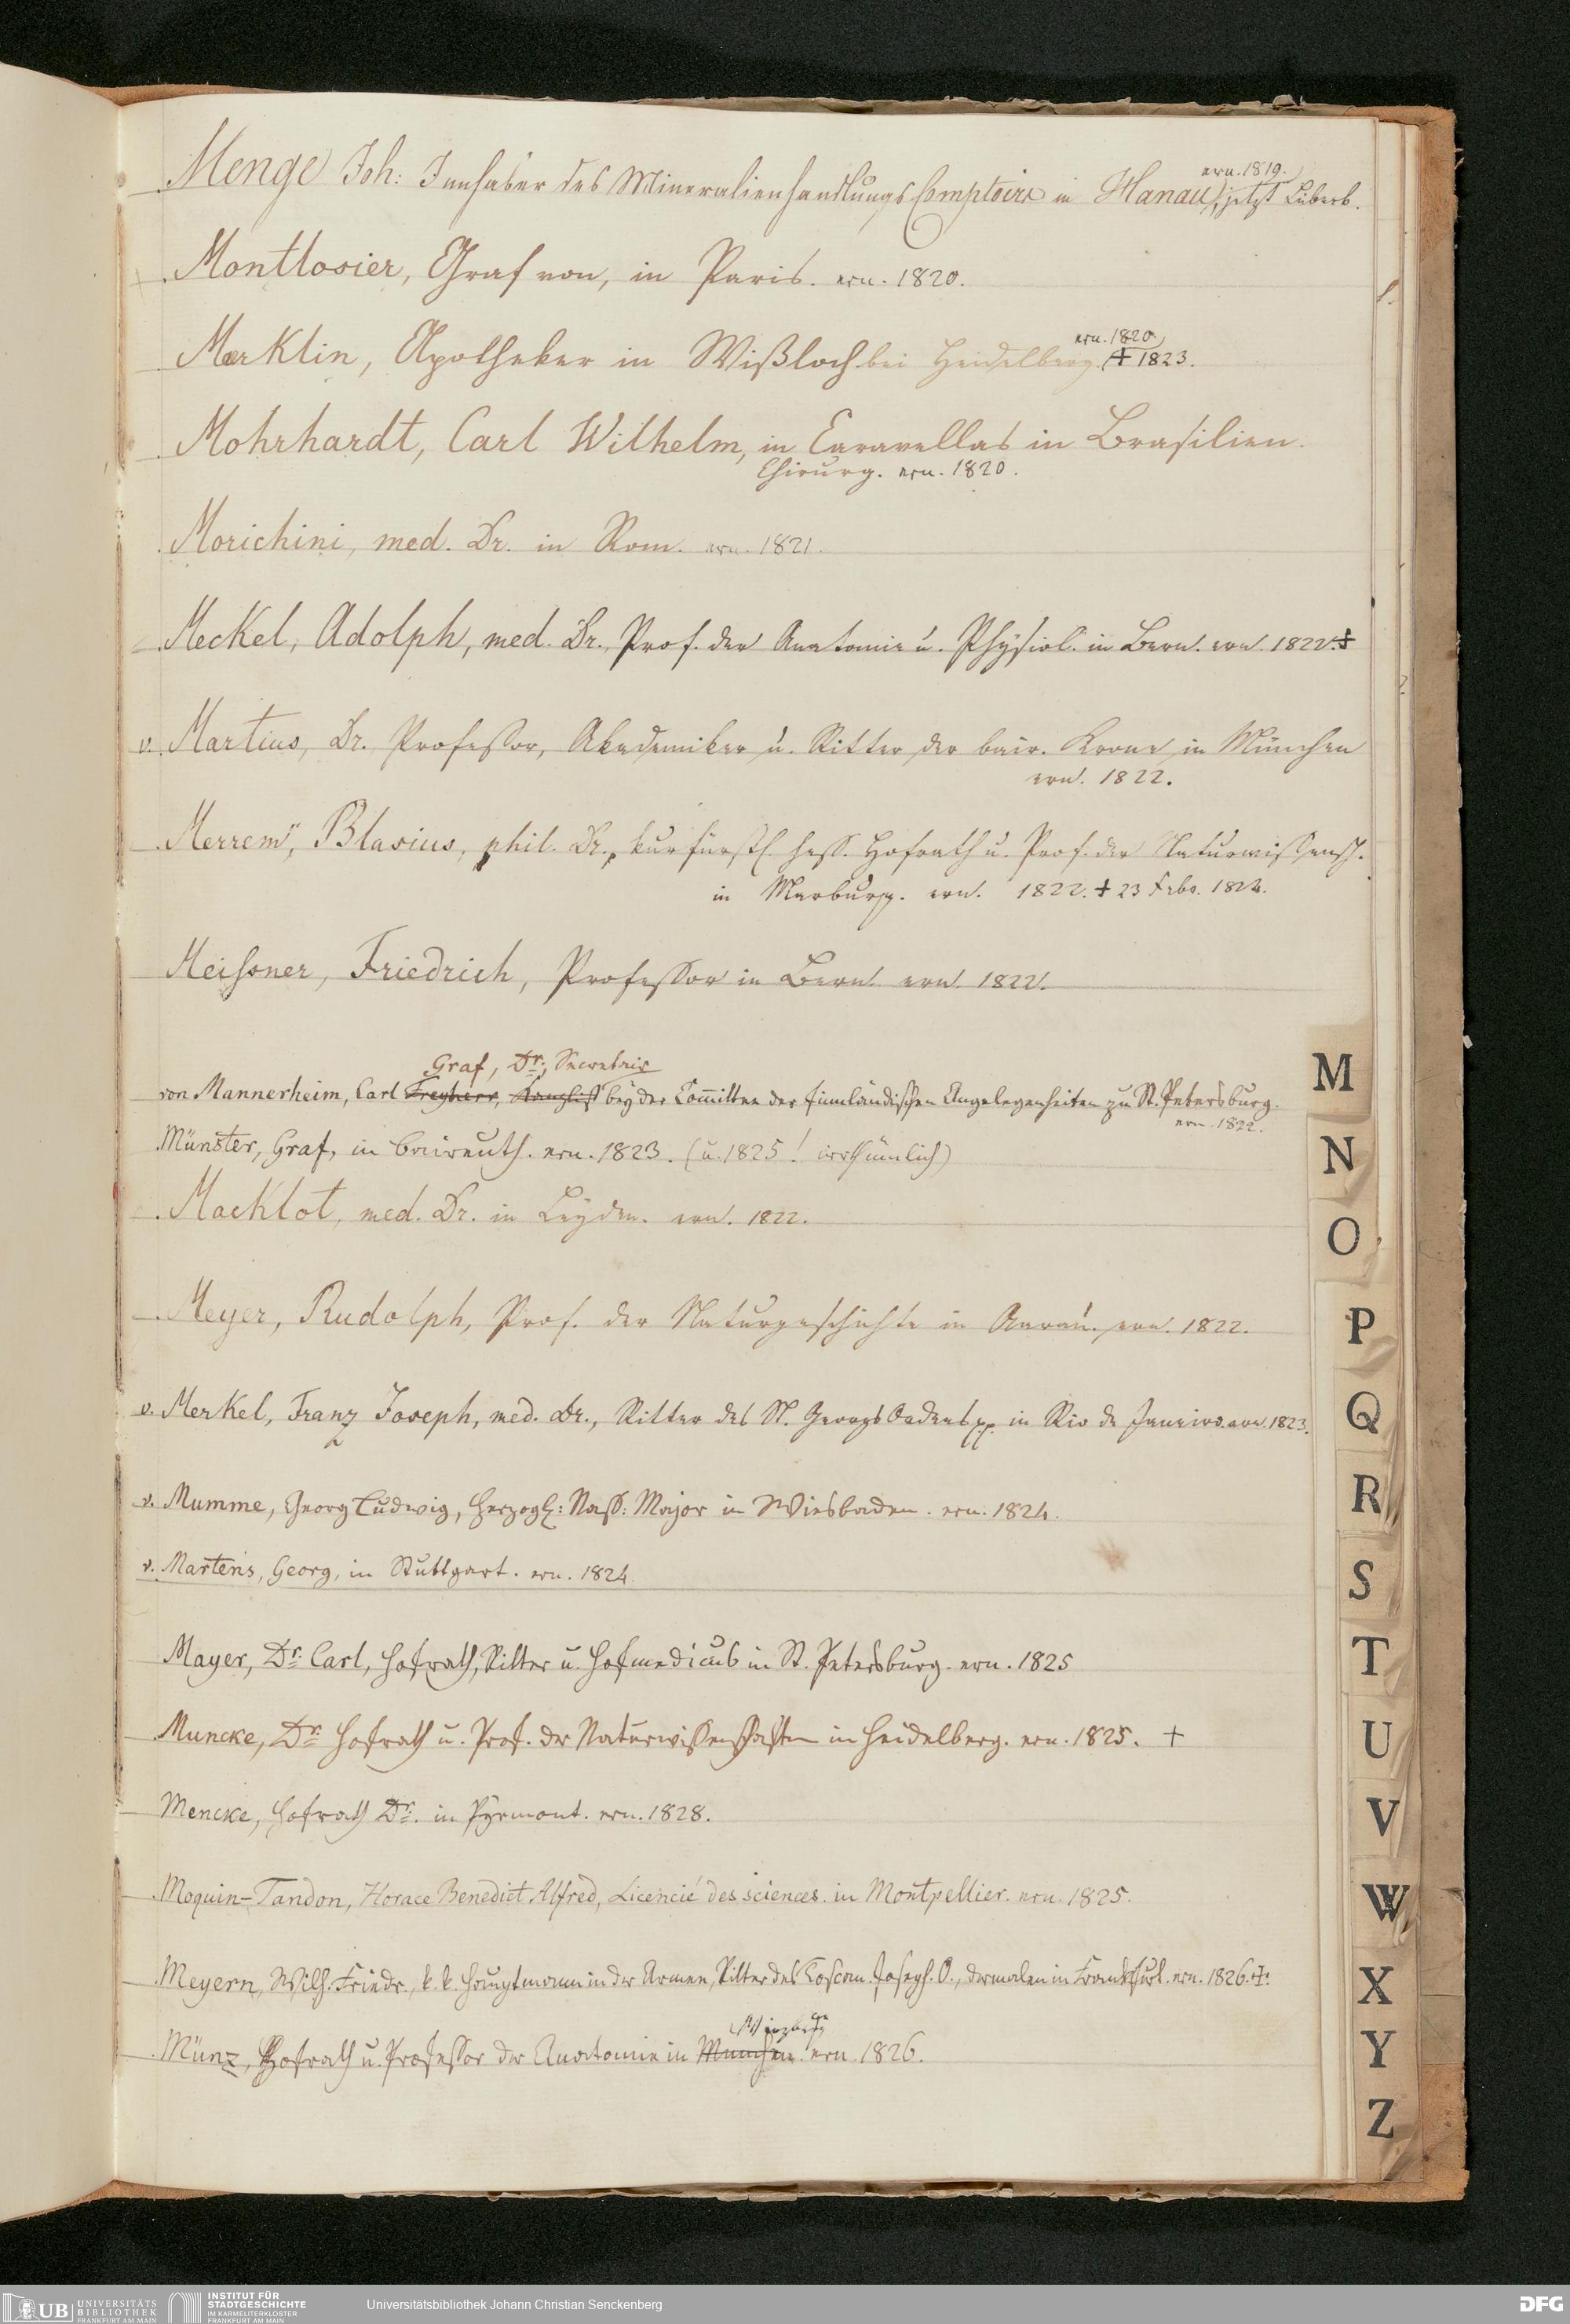 ern. 1819.
Menge Joh: Innhaber des Mineralienhandlungs Comptoirs in Hanau, jetzt Lübeck.
Montlosier, Graf von, in Paris. ern. 1820.
ern. 1820
Maerklin, Apotheker in Wißloch bei Heidelberg. † 1823.
Mohrhardt, Carl Wilhelm, in Caravellas in Brasilien.
Chirurg. ern. 1820.
Morichini, med. Dr. in Rom. ern. 1821.
Meckel, Adolph, med. Dr., Prof. der Anatomie u. Physiol. in Bern. ern. 1822. †
v. Martius, Dr. Professor, Akademiker u. Ritter der bair. Krone in München
ern. 1822.
Merrem, Blasius, phil. Dr., kurfürstl. hess. Hofrath u. Prof. der Naturwissensch.
in Marburg. ern. 1822. † 23 Febr. 1824.
Meisner, Friedrich, Professor in Bern. ern. 1822.
Graf, Dr., Secretair
von Mannerheim, Carl Freyherr, Kanzlist bey der Committee der finnländischen Angelegenheiten zu St. Petersburg.
ern. 1822.
Münster, Graf, in Baireuth. ern. 1823. (u. 1825! irrthümlich)
Macklot, med. Dr. in Leyden. ern. 1822.
Meyer, Rudolph, Prof. der Naturgeschichte in Aarau. ern. 1822.
v. Merkel, Franz Joseph, med. Dr., Ritter des St. Georgs Ordens pp. in Rio de Janeiro. ern. 1823.
v. Mumme, Georg Ludwig, Herzogl: Nass: Major in Wiesbaden. ern. 1824.
v. Martens, Georg, in Stuttgart. ern. 1824
Mayer, Dr. Carl, Hofrath, Ritter u. Hofmedicus in St. Petersburg. ern. 1825
Muncke, Dr. Hofrath u. Prof. der Naturwissenschaften in Heidelberg. ern. 1825. †
Mencke, Hofrath Dr. in Pyrmont. ern. 1828.
Moquin-Tandon, Horace Benedict Alfred, Licencié des sciences in Montpellier. ern. 1825.
Meyern, Wilh. Friedr., k. k. Hauptmann in der Armee, Ritter des Toscan. Joseph. O., dermalen in Frankfurt. ern. 1826. †.
Würzburg
Münz, Hofrath u. Professor der Anatomie in München. ern. 1826.
M
N
O
P
Q
R
S
T
U
V
W
X
Y
Z
UB UNIVERSITÄTS
BIBLIOTHEK
FRANKFURT AM MAIN
INSTITUT FÜR
STADTGESCHICHTE
IM KARMELITERKLOSTER
FRANKFURT AM MAIN
Universitätsbibliothek Johann Christian Senckenberg
DFG